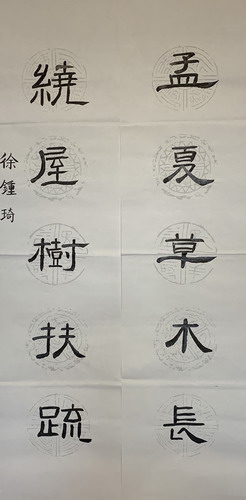 孟夏草木長
繞屋樹扶疏
徐鍾琦